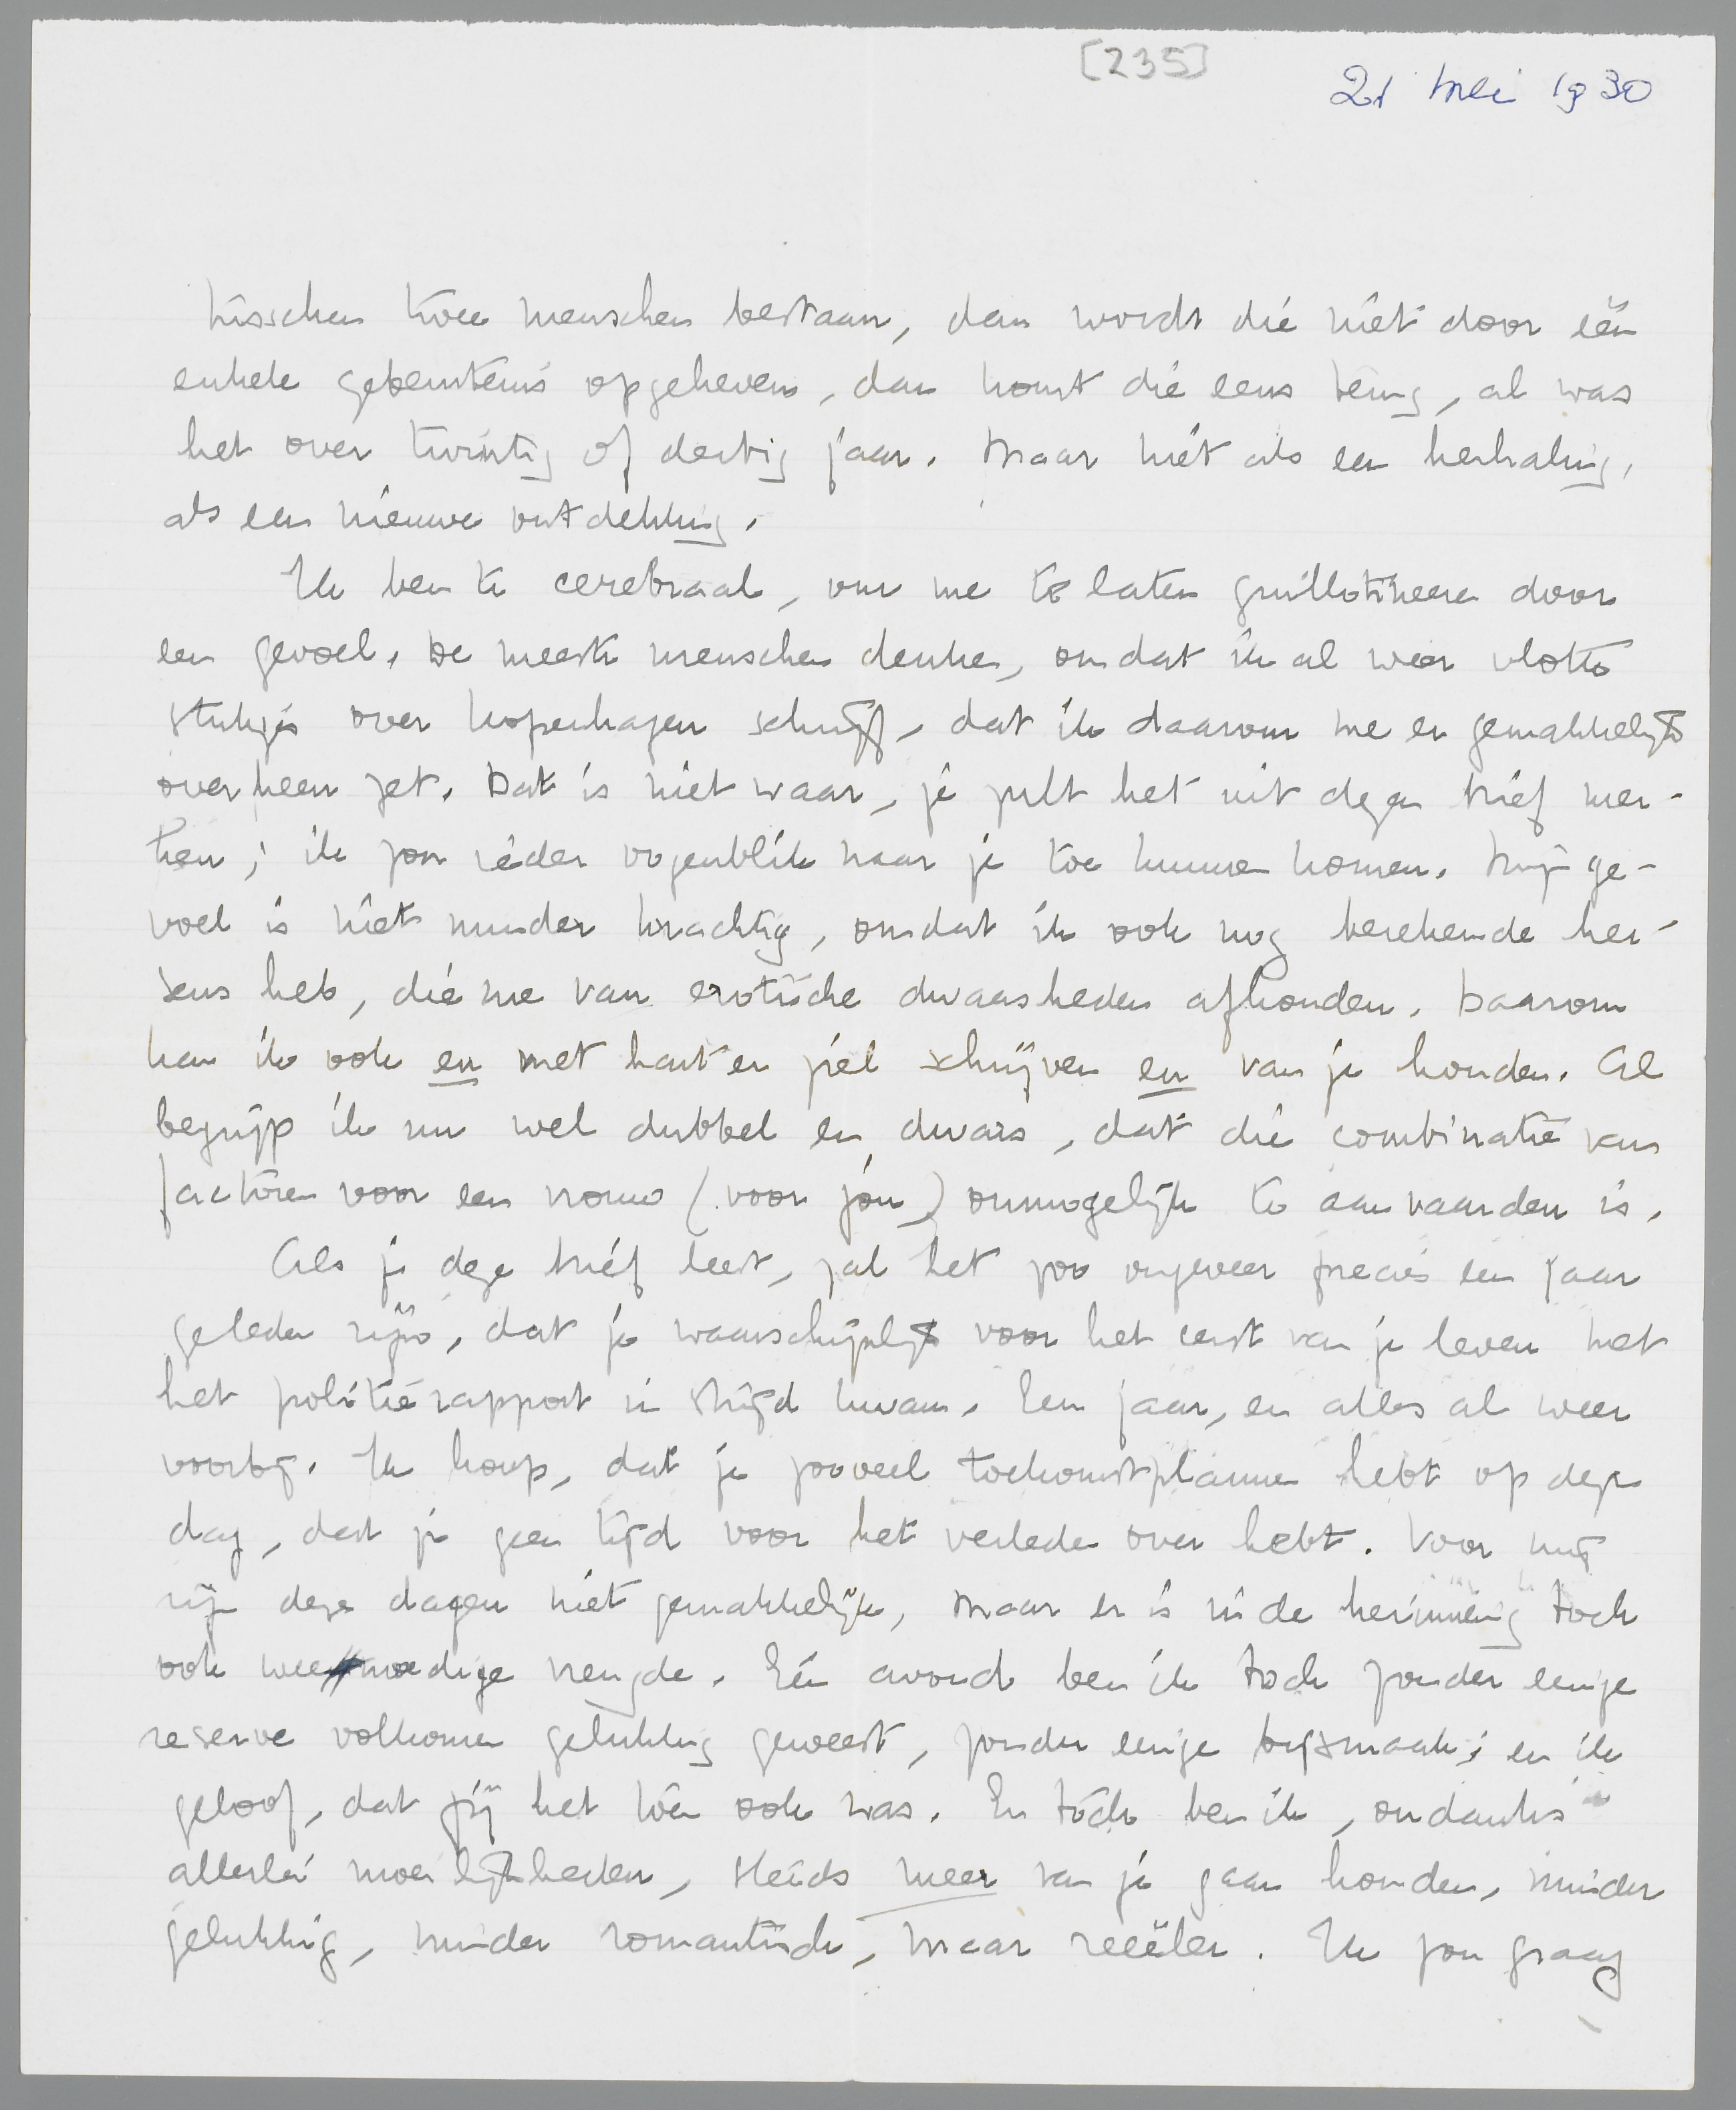 [235]
21 Mei 1930
tusschen twee menschen bestaan, dan wordt die niet door één
enkele gebeurtenis opgeheven, dan komt die eens terug, al was
het over twintig of dertig jaar. Maar niet als een herhaling,
als een nieuwe ontdekking.
Ik ben te cerebraal, om me te laten guillotineeren door
een gevoel. De meeste menschen denken, omdat ik al weer vlotte
stukjes over Kopenhagen schrijf, dat ik daarom me er gemakkelijk
overheen zet. Dat is niet waar, je zult het uit dezen brief mer-
ken; ik zou ieder oogenblik naar je toe kunnen komen. Mijn ge-
voel is niet minder krachtig, omdat ik ook nog berekende her-
sens heb, die me van erotische dwaasheden afhouden. Daarom
kan ik ook en met hart en ziel schrijven en van je houden. Al
begrijp ik nu wel dubbel en dwars, dat die combinatie van
factoren voor een vrouw (voor jóu) onmogelijk te aanvaarden is.
Als je deze brief leest, zal het zoo ongeveer precies een jaar
geleden zijn, dat je waarschijnlijk voor het eerst van je leven met
het politierapport in strijd kwam. Een jaar, en alles al weer
voorbij. Ik hoop, dat je zooveel toekomstplannen hebt op dezen
dag, dat je geen tijd voor het verleden over hebt. Voor mij
zijn deze dagen niet gemakkelijk, maar er is in de herinnering toch
ook weemoedige vreugde. Eén avond ben ik toch zonder eenige
reserve volkomen gelukkig geweest, zonder eenige bijsmaak; en ik
geloof, dat jij het toen ook was. En tóch ben ik, ondanks
allerlei moeilijkheden, steeds meer van je gaan houden, minder
gelukkig, minder romantisch, maar reëeler. Ik zou graag